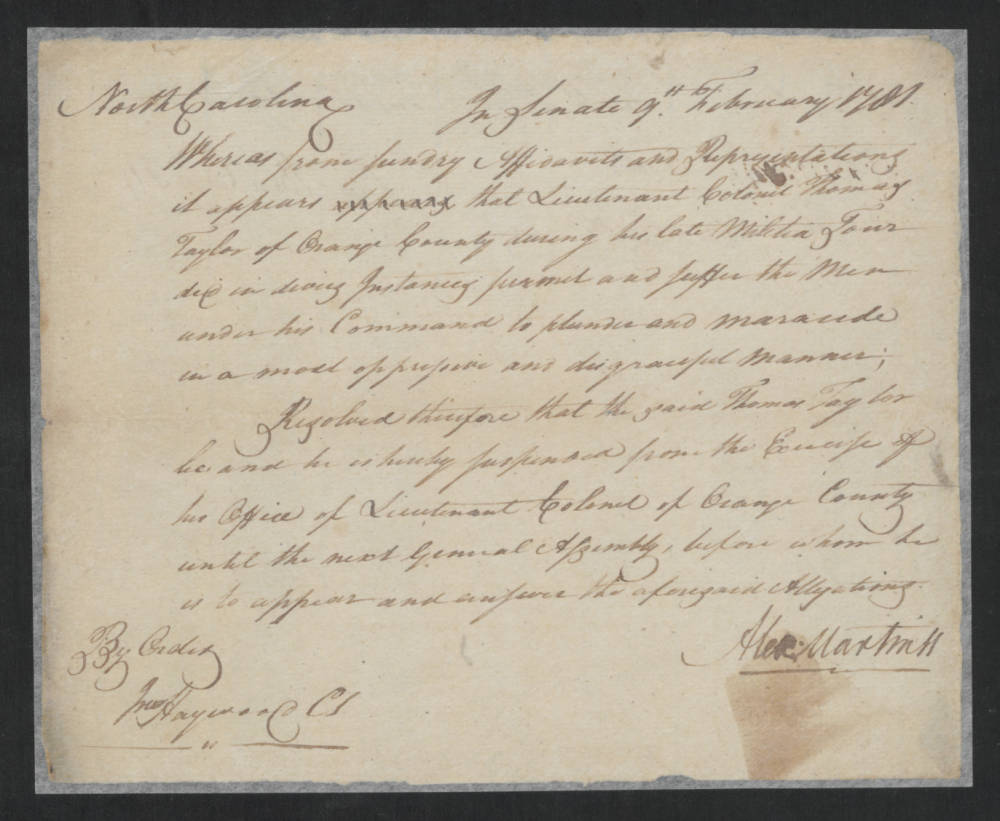 North Carolina In Senate 9th. February 1781.
Whereas from sundry Affidavits and Representations
it appears appears that Lieutenant Colonel Thomas
Taylor of Orange County during his late Militia Tour
did in divers Instances permit and suffer the Men
under his Command to plunder and maraude
in a most oppressive and disgraceful Manner;
Resolved therefore that the said Thomas Taylor
be and he is hereby suspended from the Exercise of
his Office of Lieutenant Colonel of Orange County
until the next General Assembly, before whom he
is to appear and answer the aforesaid Allegations.
Alex: Martin SS
By Order
Jno Haywood CS